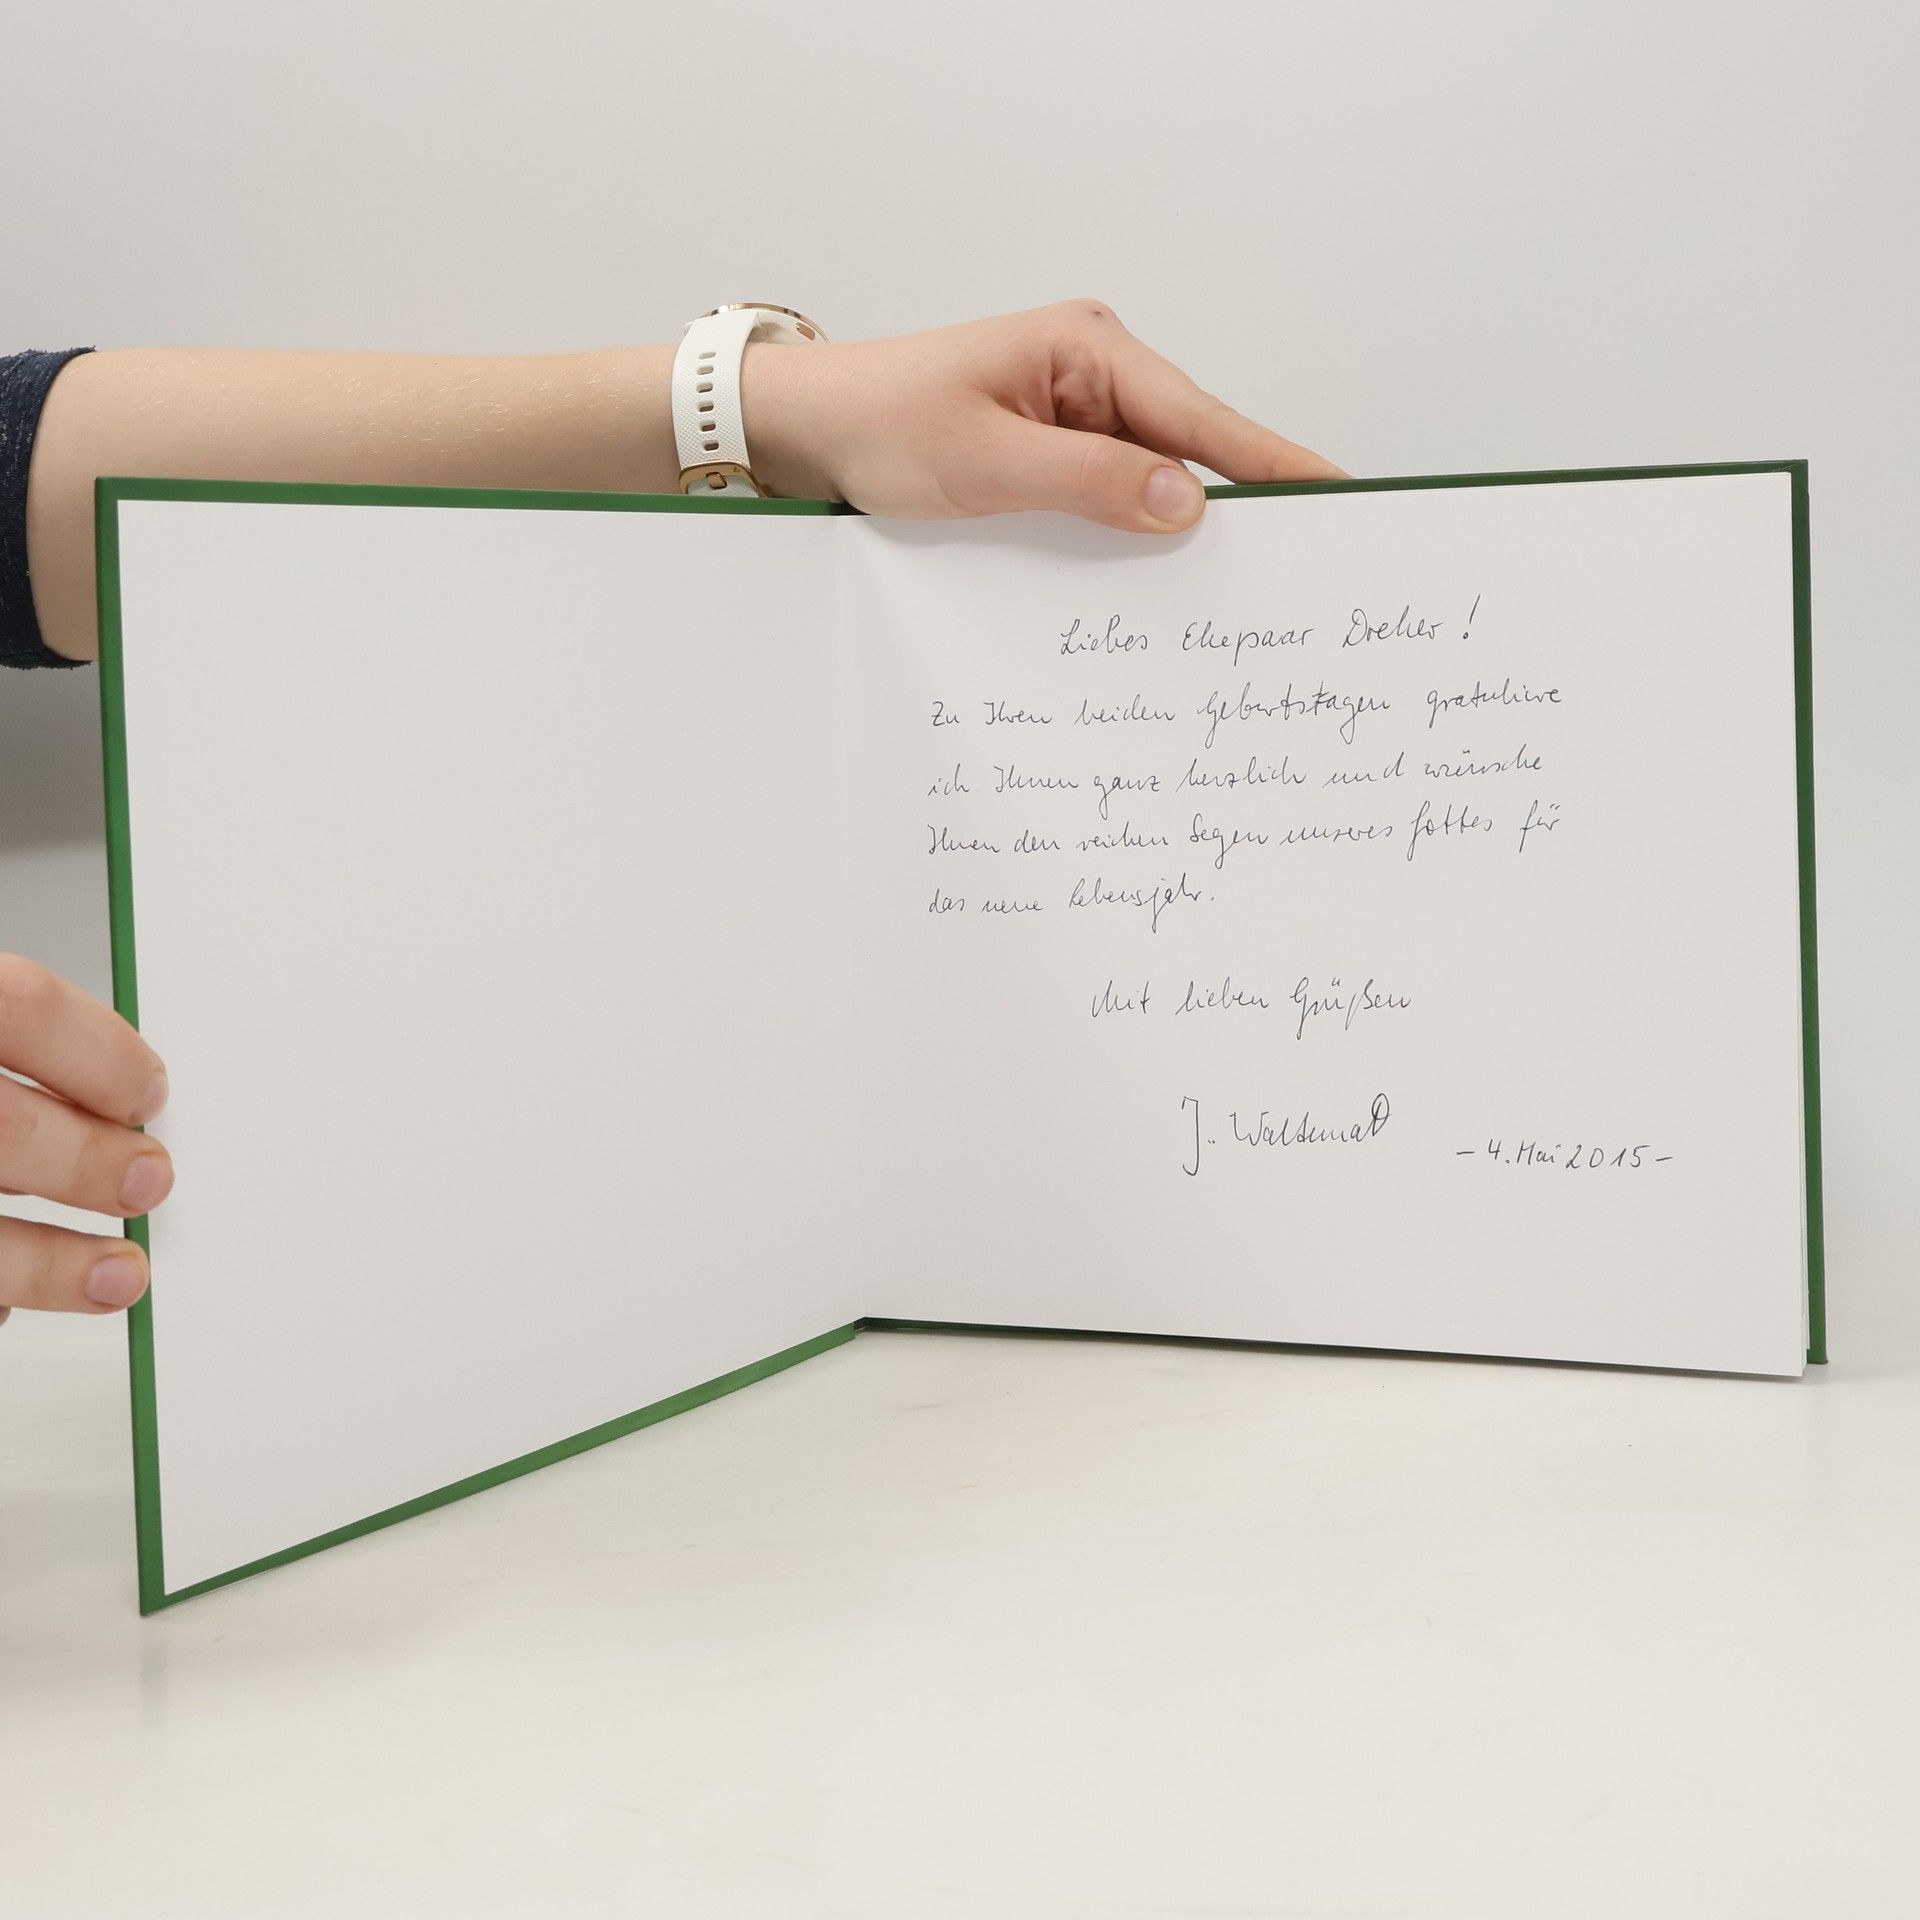 Liebes Ehepaar Dreher!
Zu Ihren beiden Geburtstagen gratuliere
ich Ihnen ganz herzlich und wünsche
Ihnen den reichen Segen unseres Gottes für
das neue Lebensjahr.
Mit lieben Grüßen
J. Waltema
- 4. Mai 2015 -